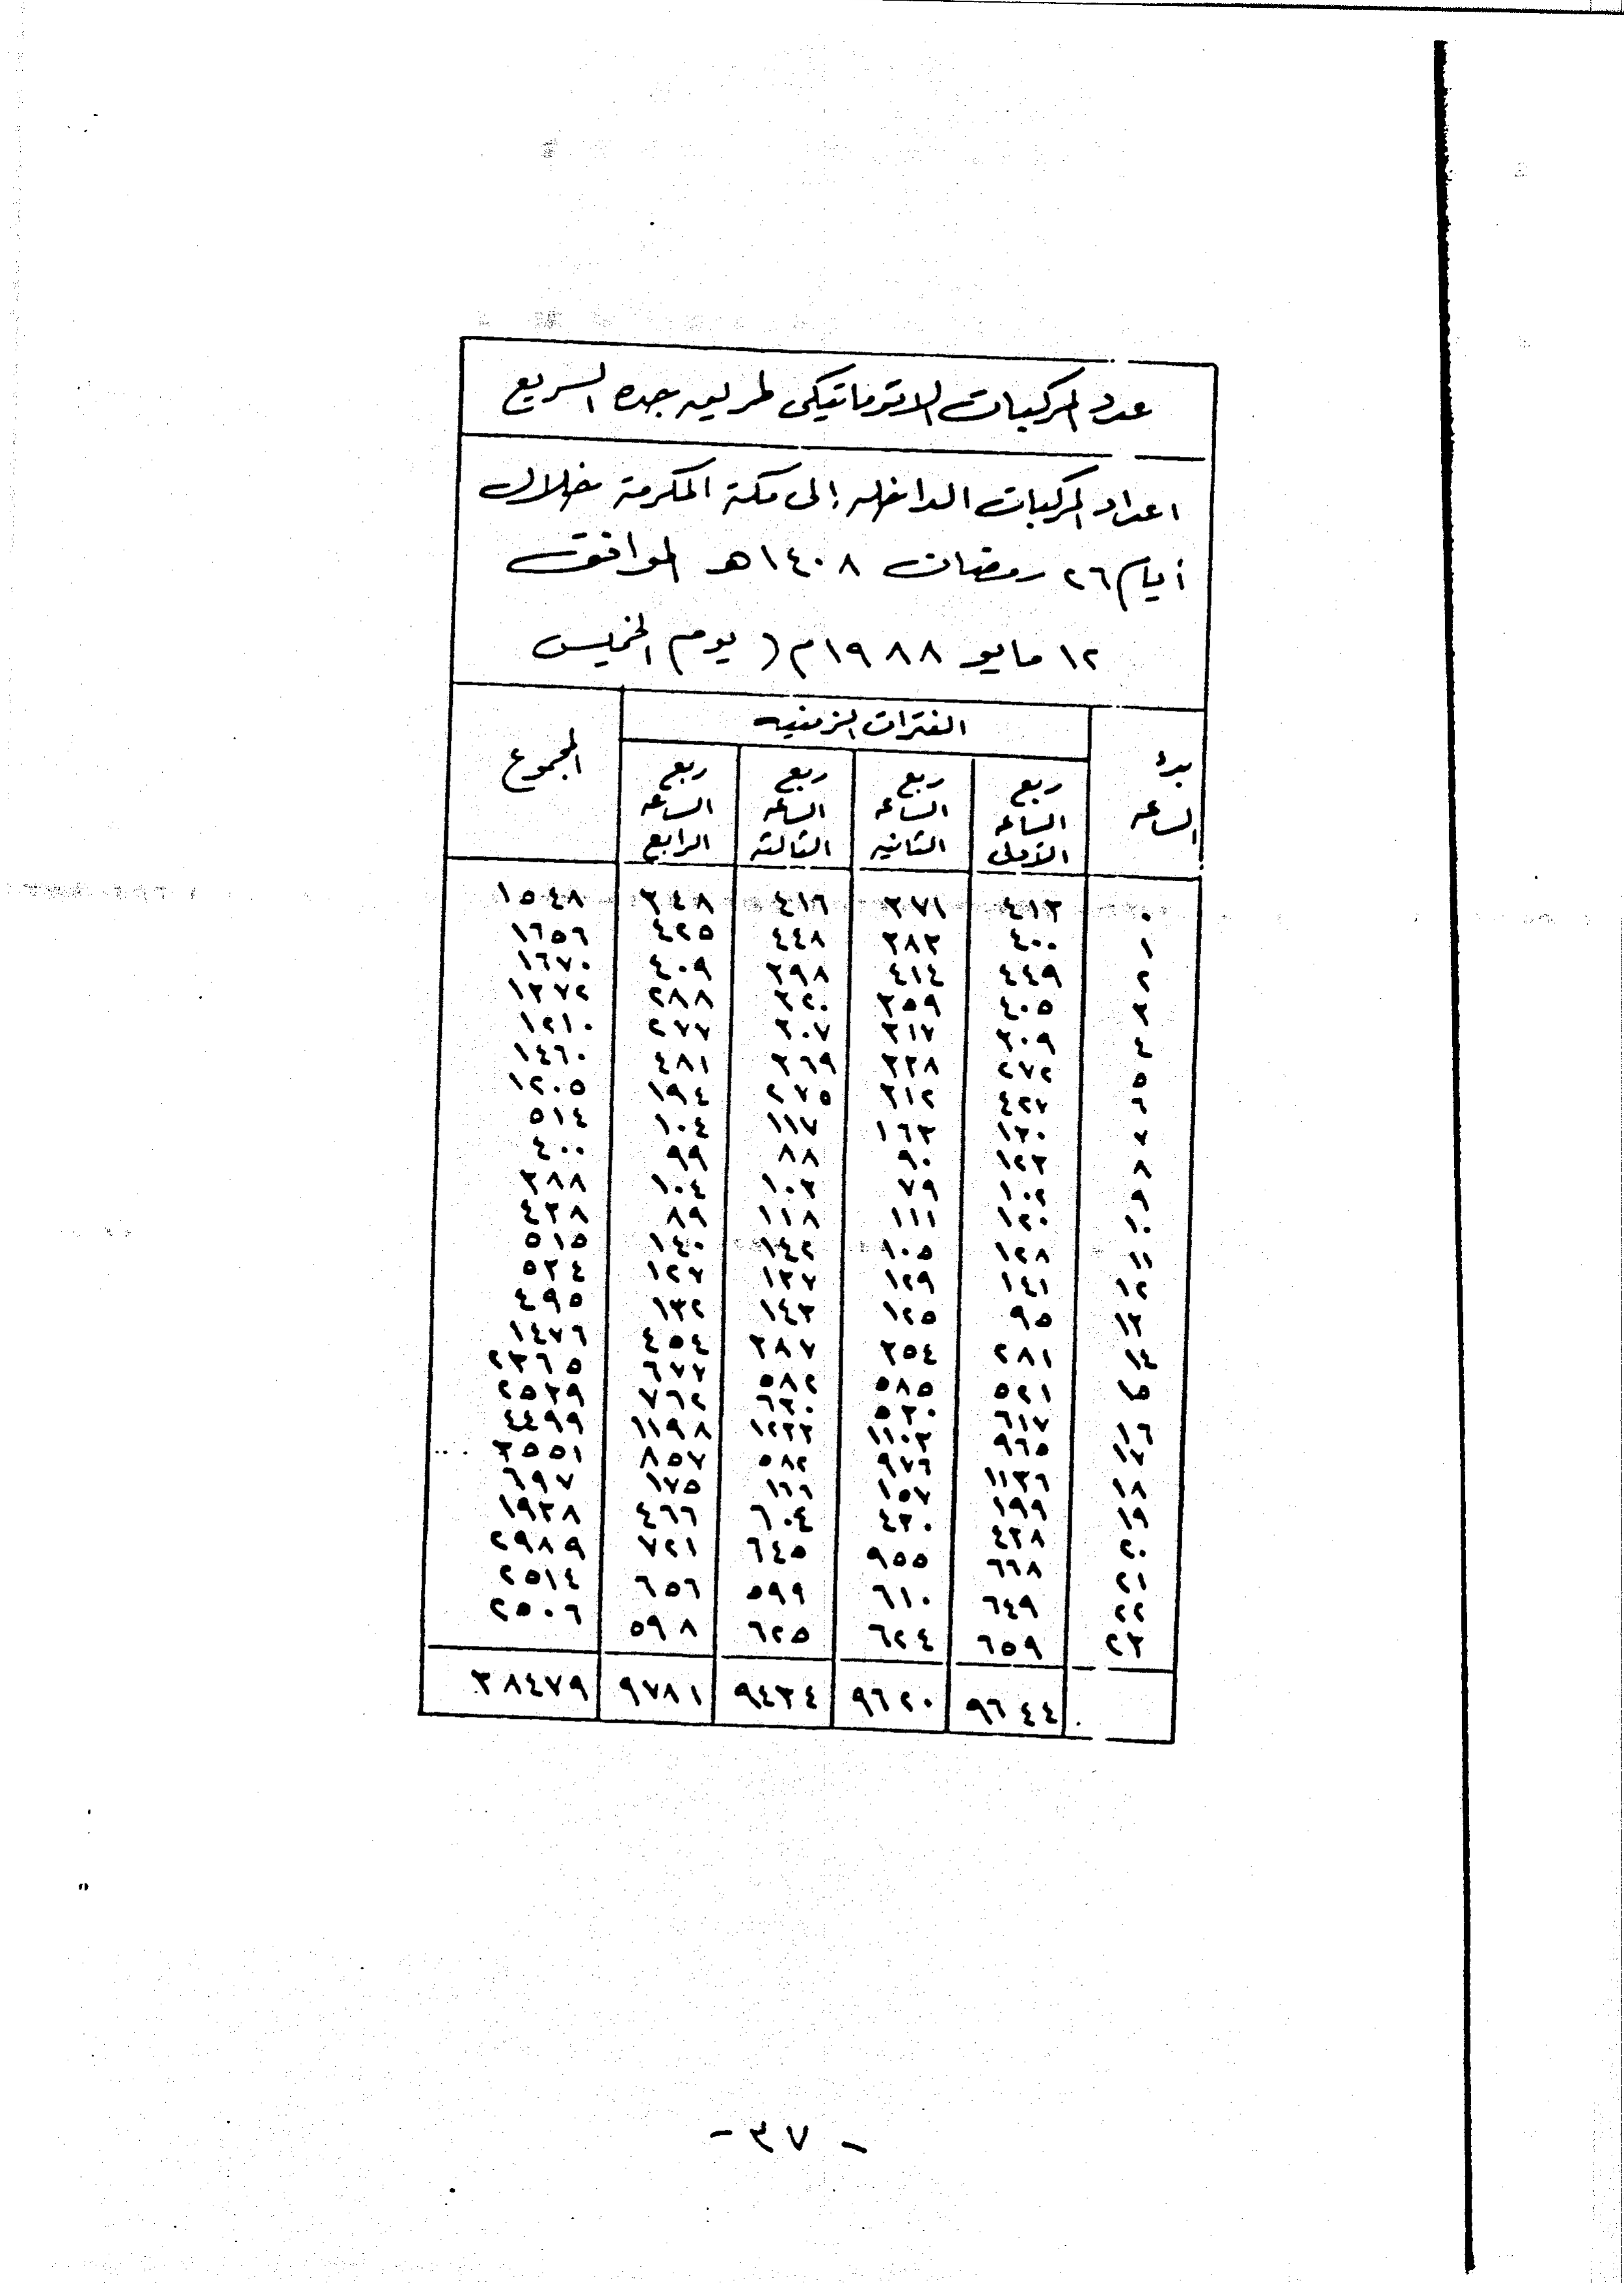 عدد المركبات الاتوماتيكى طريق جده السريع
اعداد المركبات الداخله إلى مكة المكرمة خلال
أيام ٢٦ رمضان ١٤٠٨هـ الموافق
١٢ مايو ١٩٨٨م ( يوم الخميس
بدء الساعه
الفترات الزمنيه
المجموع
ربع الساعه الأولى
ربع الساعه الثانيه
ربع الساعه الثالثة
ربع الساعه الرابع
٠ ٤١٣ ٣٧١ ٤١٦ ٣٤٨ ١٥٤٨
١ ٤٠٠ ٣٨٣ ٤٤٨ ٤٢٥ ١٦٥٦
٢ ٤٤٩ ٤١٤ ٣٩٨ ٤٠٩ ١٦٧٠
٣ ٤٠٥ ٣٥٩ ٣٢٠ ٢٨٨ ١٣٧٢
٤ ٣٠٩ ٣١٧ ٣٠٧ ٢٧٧ ١٢١٠
٥ ٢٧٢ ٣٣٨ ٣٦٩ ٤٨١ ١٤٦٠
٦ ٤٢٤ ٣١٢ ٢٧٥ ١٩٤ ١٢٠٥
٧ ١٣٠ ١٦٣ ١١٧ ١٠٤ ٥١٤
٨ ١٢٣ ٩٠ ٨٨ ٩٩ ٤٠٠
٩ ١٠٢ ٧٩ ١٠٣ ١٠٤ ٣٨٨
١٠ ١٢٠ ١١١ ١١٨ ٨٩ ٤٣٨
١١ ١٢٨ ١٠٥ ١٤٢ ١٤٠ ٥١٥
١٢ ١٤١ ١٢٩ ١٣٧ ١٢٧ ٥٣٤
١٣ ٩٥ ١٢٥ ١٤٣ ١٣٢ ٤٩٥
١٤ ٢٨١ ٣٥٤ ٣٨٧ ٤٥٤ ١٤٧٦
١٥ ٥٢١ ٥٨٥ ٥٨٢ ٦٧٧ ٢٣٦٥
١٦ ٦١٧ ٥٣٠ ٦٣٠ ٧٦٢ ٢٥٣٩
١٧ ٩٦٥ ١١٠٣ ١٢٣٣ ١١٩٨ ٤٤٩٩
١٨ ١١٣٦ ٩٧٦ ٥٨٢ ٨٥٧ ٣٥٥١
١٩ ١٩٩ ١٥٧ ١٦٦ ١٧٥ ٦٩٧
٢٠ ٤٣٨ ٤٣٠ ٦٠٤ ٤٦٦ ١٩٣٨
٢١ ٦٦٨ ٩٥٥ ٦٤٥ ٧٢١ ٢٩٨٩
٢٢ ٦٤٩ ٦١٠ ٥٩٩ ٦٥٦ ٢٥١٤
٢٣ ٦٥٩ ٦٢٤ ٦٢٥ ٥٩٨ ٢٥٠٦
٩٦٤٤ ٩٦٢٠ ٩٤٣٤ ٩٧٨١ ٣٨٤٧٩
- ٣٧ -